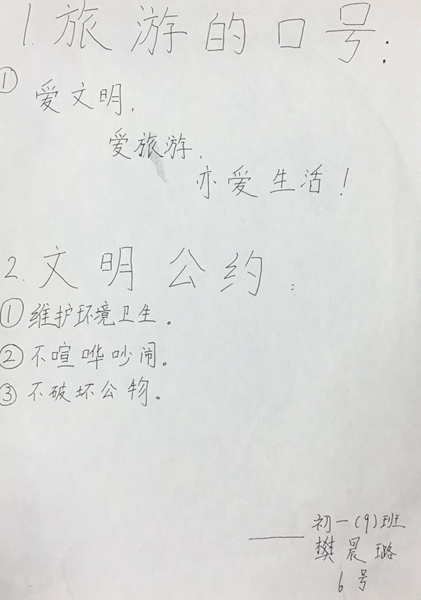 1.旅游的口号:
①爱文明,
爱旅游,
亦爱生活!
2.文明公约:
①维护环境卫生。
②不喧哗吵闹。
③不破坏公物。
——初一(9)班
樊晨璐
6号